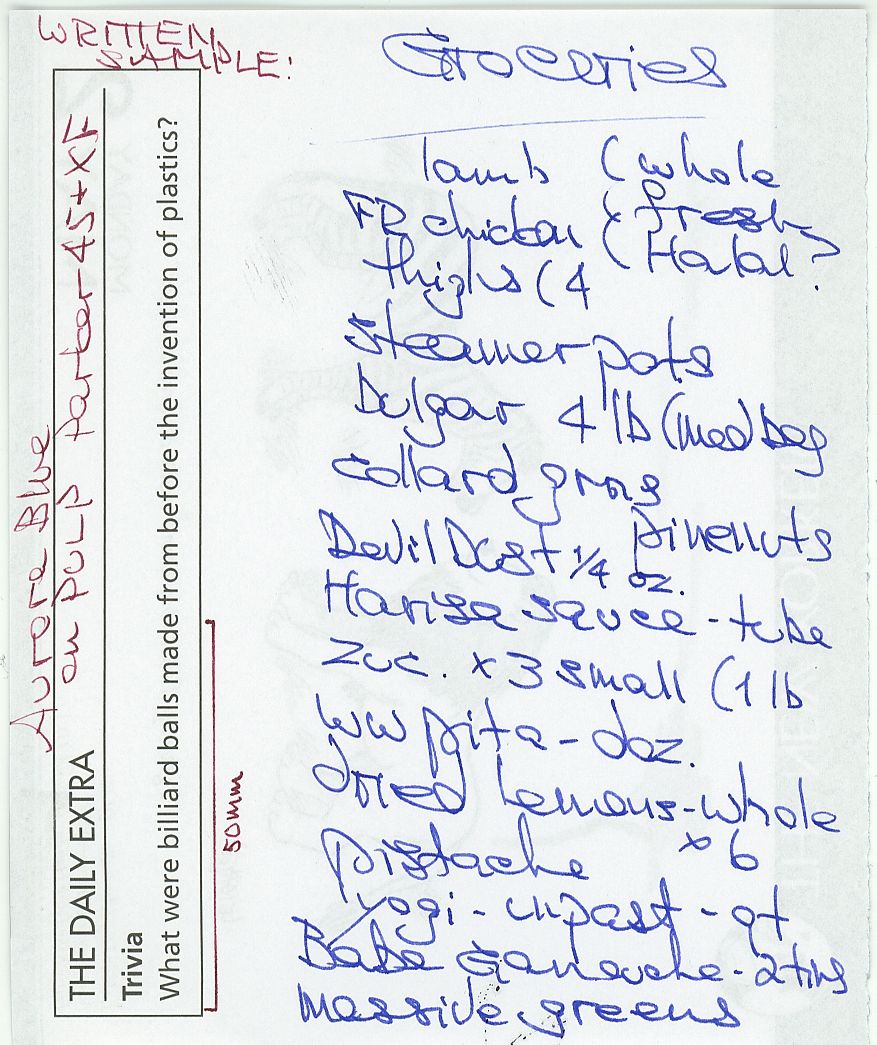 WRITTEN
SAMPLE:
Aurora Blue
on PULP Parker 45+XF
THE DAILY EXTRA
Trivia
What were billiard balls made from before the invention of plastics?
50mm
Groceries
lamb (whole
FR chicken (fresh
thighs (4 (Halal?
Steamer pots
Bulgar 4 lb (med bag
collard grns
Devil Dust 1/4 oz. pinenuts
Harisa sauce - tube
zuc. x 3 small (1 lb
ww pita - doz.
Dried Lemons - whole
pistache x 6
yogi - unpast - qt
Baba Ganouche - 2 tins
Massive greens